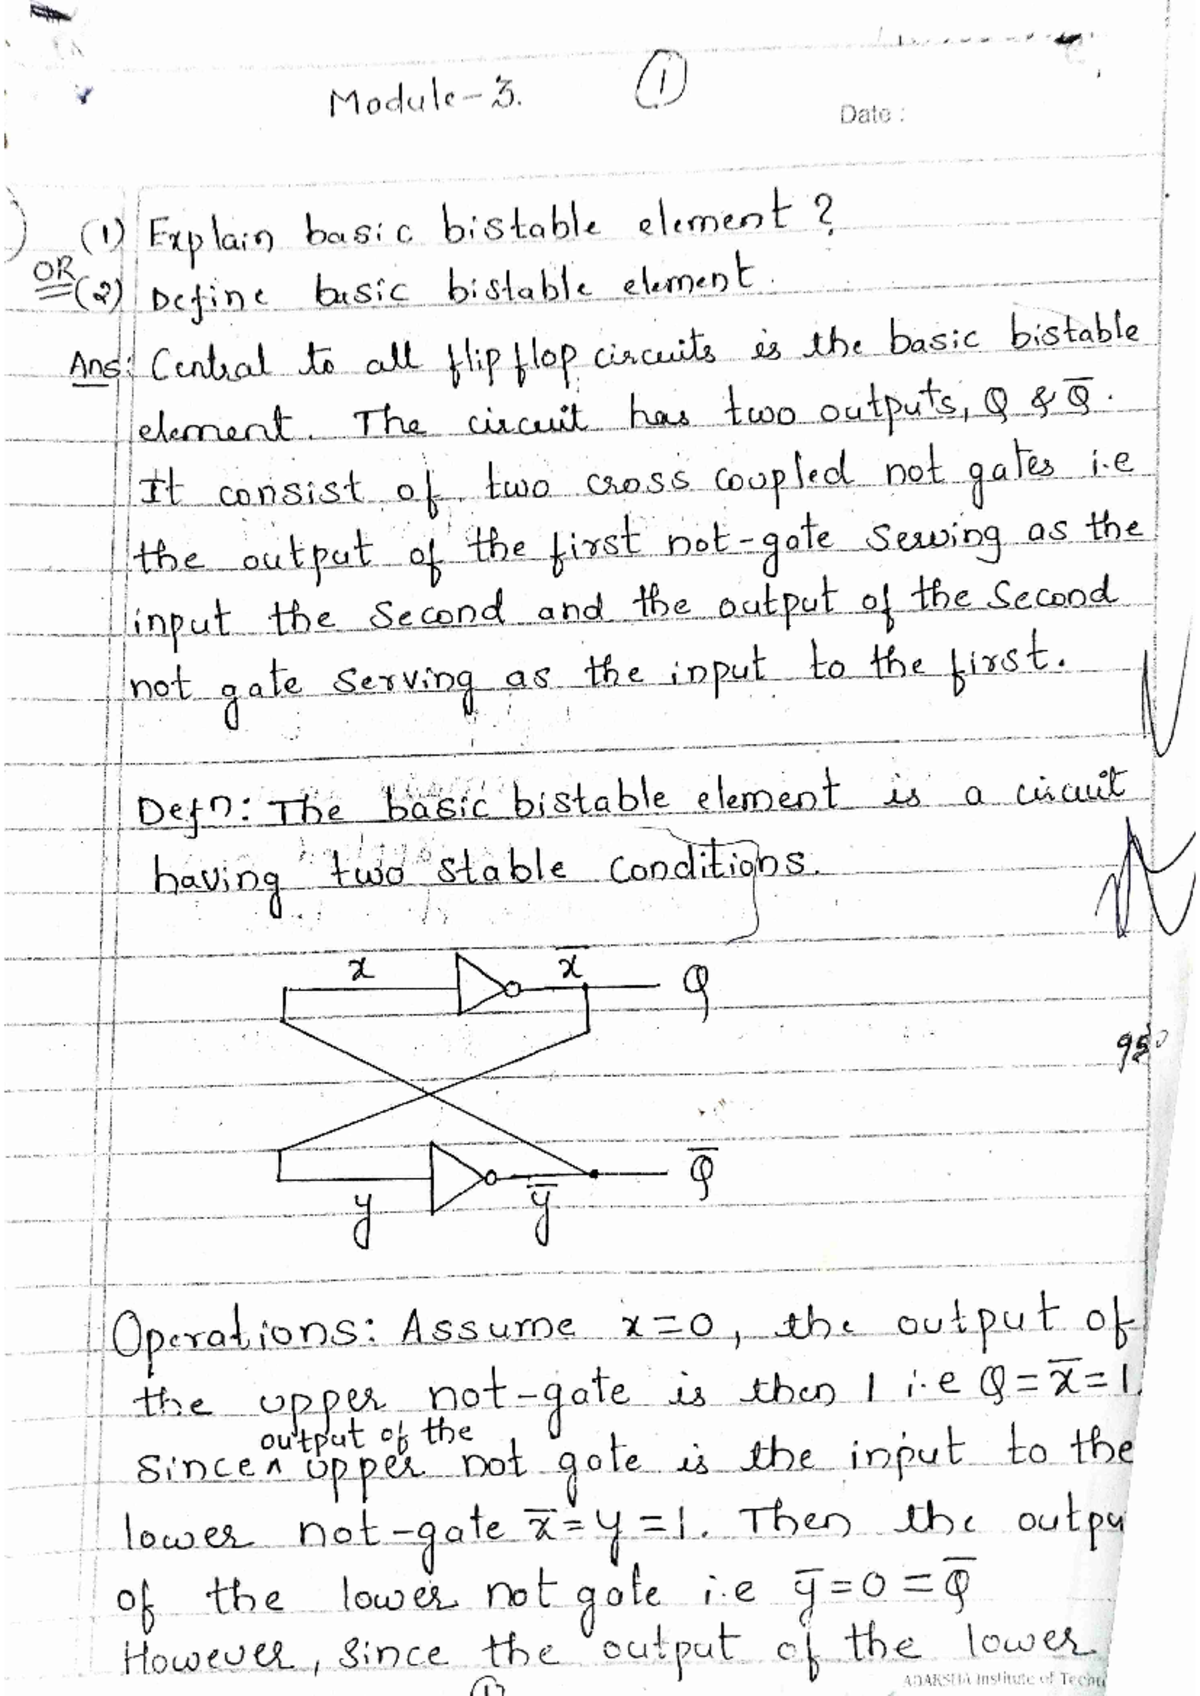 Module-3.
1
Date :
(1) Explain basic bistable element ?
OR
(2) Define basic bistable element.
Ans: Central to all flip flop circuits is the basic bistable
element. The circuit has two outputs, Q & Q̅.
It consist of two cross coupled not gates i.e
the output of the first not-gate serving as the
input the Second and the output of the Second
not gate serving as the input to the first.
Defn: The basic bistable element is a circuit
having two stable conditions.
x x̅ Q
y y̅ Q̅
Operations: Assume x=0, the output of
the upper not-gate is then 1 i.e Q = x̅ = 1.
output of the
Since ^ upper not gate is the input to the
lower not-gate x̅ = y = 1. Then the outpu
of the lower not gate i.e y̅ = 0 = Q̅
However, since the output of the lower
ADARSHA Institute of Techn